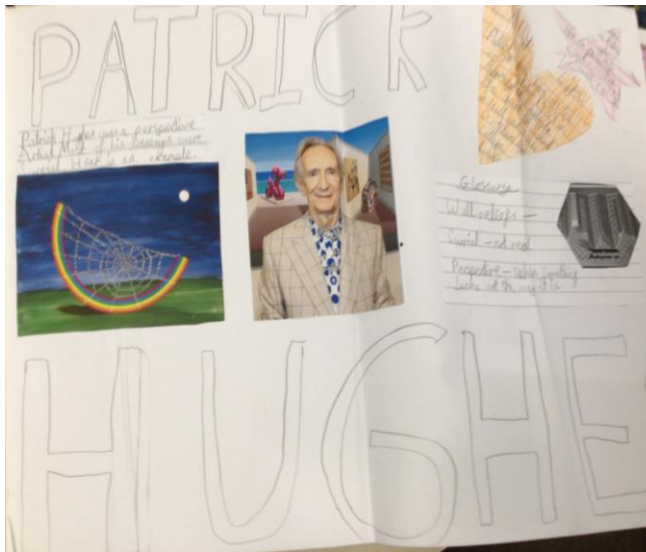 PATRICK
Patrick Hughes was a perspective
Artist. Many of his drawings were
surreal. Here is an example.
Glossary
Wall reliefs -
Surreal - not real
Perspective - when something
looks at the way it is
HUGHE